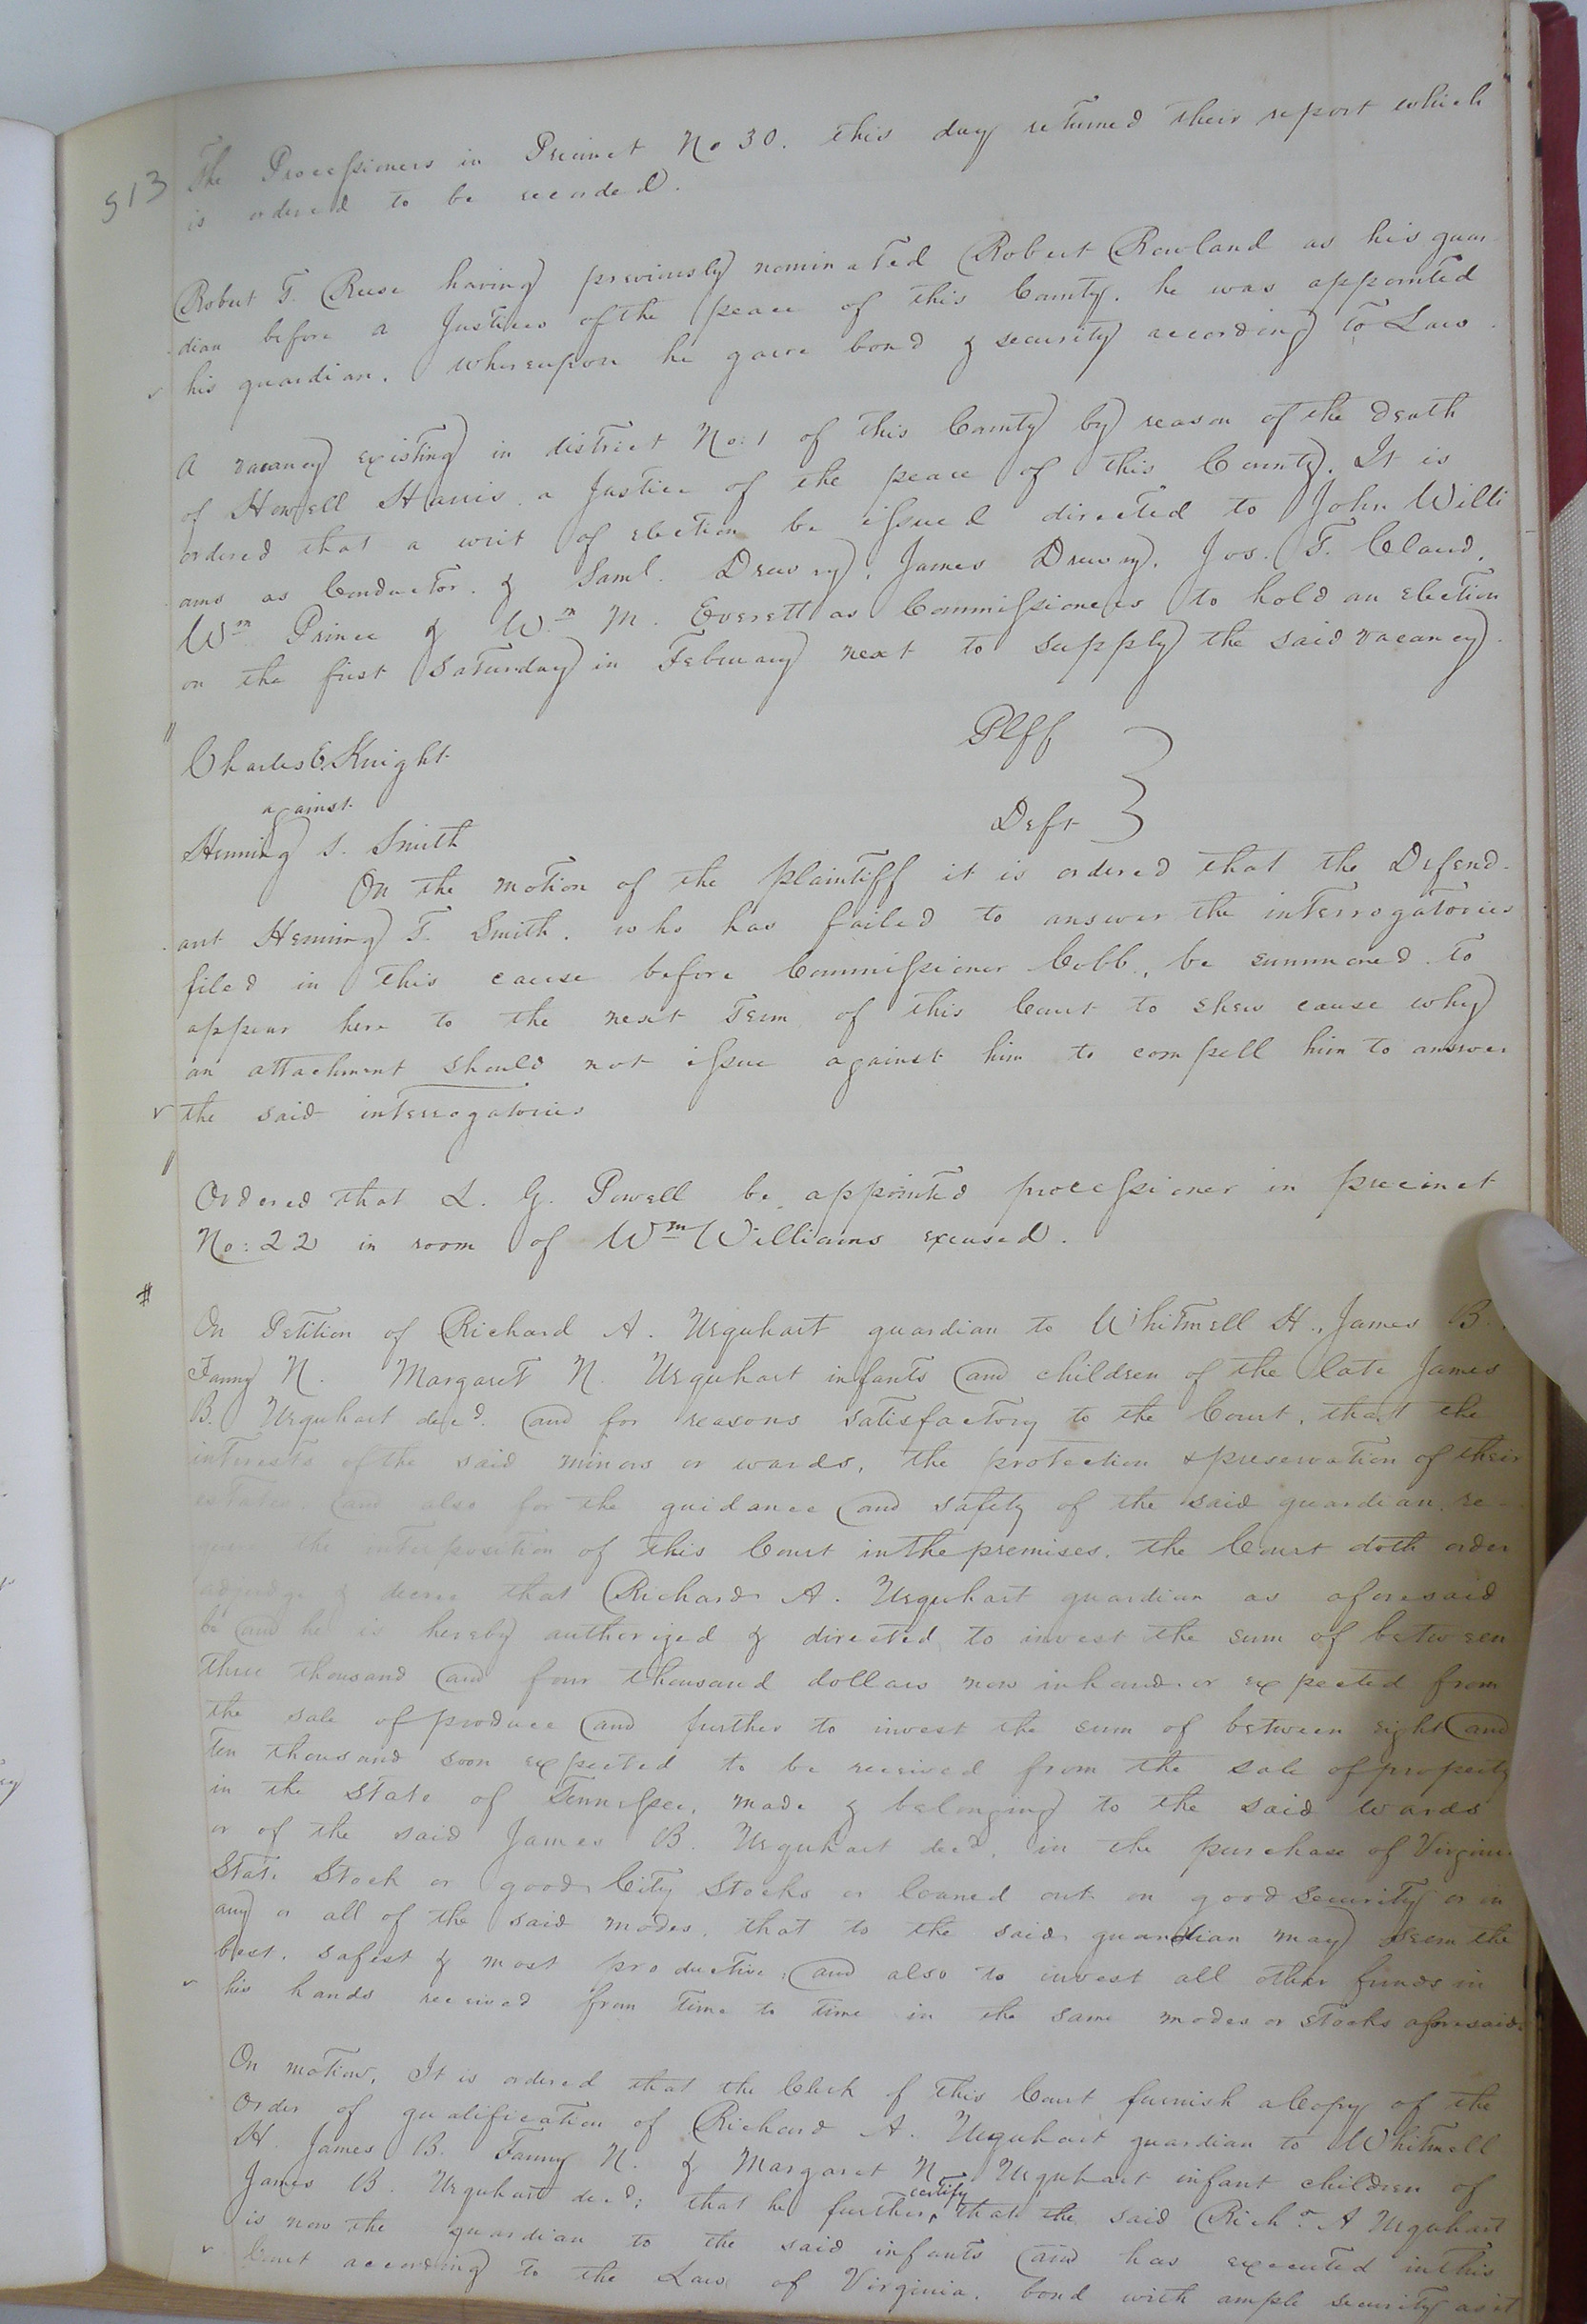 513
The Processioners in Precinct No 30. this day returned their report which
is ordered to be recorded.
Robert T. Reese having previously nominated Robert Rowland as his guar-
dian before a Justices of the peace of this County. he was appointed
his guardian. whereupon he gave bond & security according to Law.
A vacancy existing in district No: 1 of this County by reason of the death
of Howell Harris. a Justice of the peace of this County. It is
ordered that a writ of election be issued directed to John Willi
ams as Conductor. & Saml. Drewry, James Drewry, Jos. T. Claud,
Wm Prince & Wm M. Everett as Commissioners to hold an election
on the first Saturday in February next to supply the said vacancy.
Charles C. Knight Plff
against
Henning T. Smith Deft
On the motion of the plaintiff it is ordered that the Defend-
ant Henning T. Smith. who has failed to answer the interrogatories
filed in this cause before Commissioner Cobb, be summoned to
appear here to the next Term of this Court to shew cause why
an attachment should not issue against him to compell him to answer
the said interrogatories
Ordered that L. G. Powell be appointed processioner in precinct
No: 22 in room of Wm Williams excused.
On Petition of Richard A. Urquhart guardian to Whitmell H., James B.
Fanny N. Margaret N. Urquhart infants and children of the late James
B. Urquhart decd. and for reasons satisfactory to the Court, that the
interests of the said minors or wards, the protection & preservation of their
estates and also for the guidance and safety of the said guardian re-
quire the interposition of this Court in the premises. the Court doth order
adjudge & decree that Richard A. Urquhart guardian as aforesaid
be and he is hereby authorized & directed to invest the sum of between
three thousand and four thousand dollars now in hand or expected from
the sale of produce and further to invest the sum of between eight and
Ten thousand soon expected to be received from the sale of property
in the State of Tennessee, made & belonging to the said wards
or of the said James B. Urquhart decd, in the purchase of Virginia
State Stock or good City Stocks or loaned out on good security or in
any or all of the said modes, that to the said guardian may seem the
best. safest & most productive, and also to invest all other funds in
his hands received from time to time in the same modes or stocks aforesaid.
On motion, It is ordered that the Clerk of this Court furnish a Copy of the
Order of qualification of Richard A. Urquhart guardian to Whitmell
H. James B. Fanny N. & Margaret N. Urquhart infant children of
James B. Urquhart decd; that he further certify that the said Richd A Urquhart
is now the guardian to the said infants and has executed in this
Court according to the Law of Virginia, bond with ample security as it